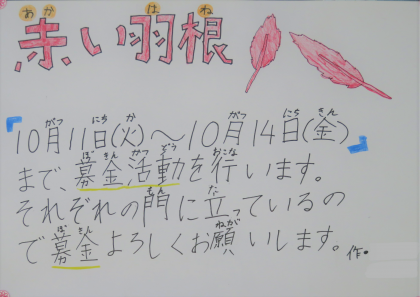 赤い羽根
10月11日(火)〜10月14日(金)
まで、募金活動を行います。
それぞれの門に立っているの
で募金よろしくお願いします。
作・